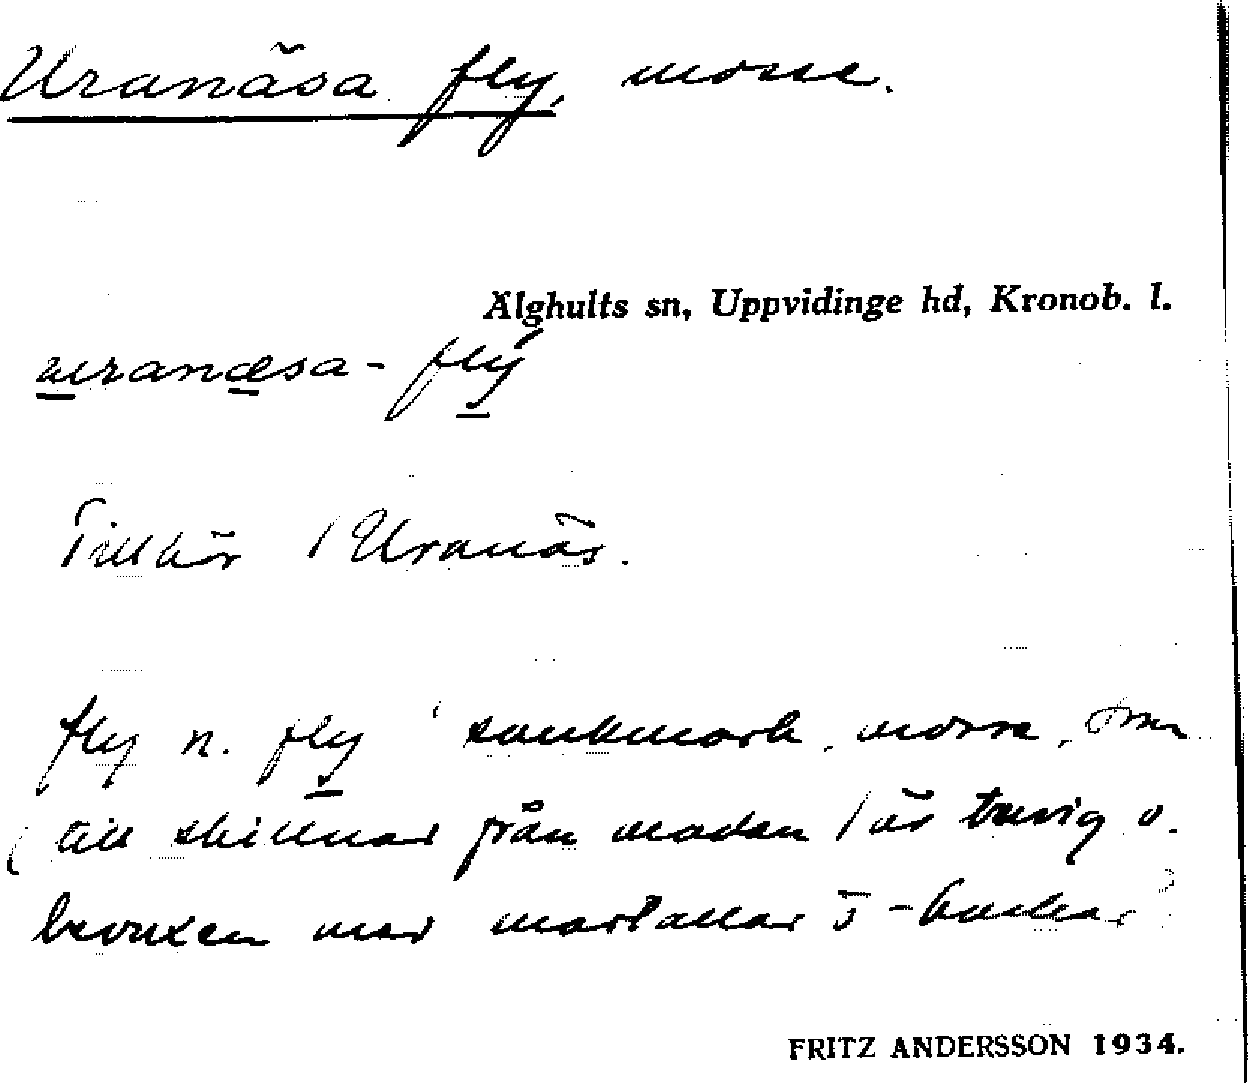 Uranäsa fly, mosse.
Älghults sn, Uppvidinge hd, Kronob. l.
uranæsa-flý
Tillhör Uranäs.
fly n. fly 'sankmark, mosse, som
(till skillnad från maden) är tuvig o.
bevuxen med martallar o -buskar'
FRITZ ANDERSSON 1934.